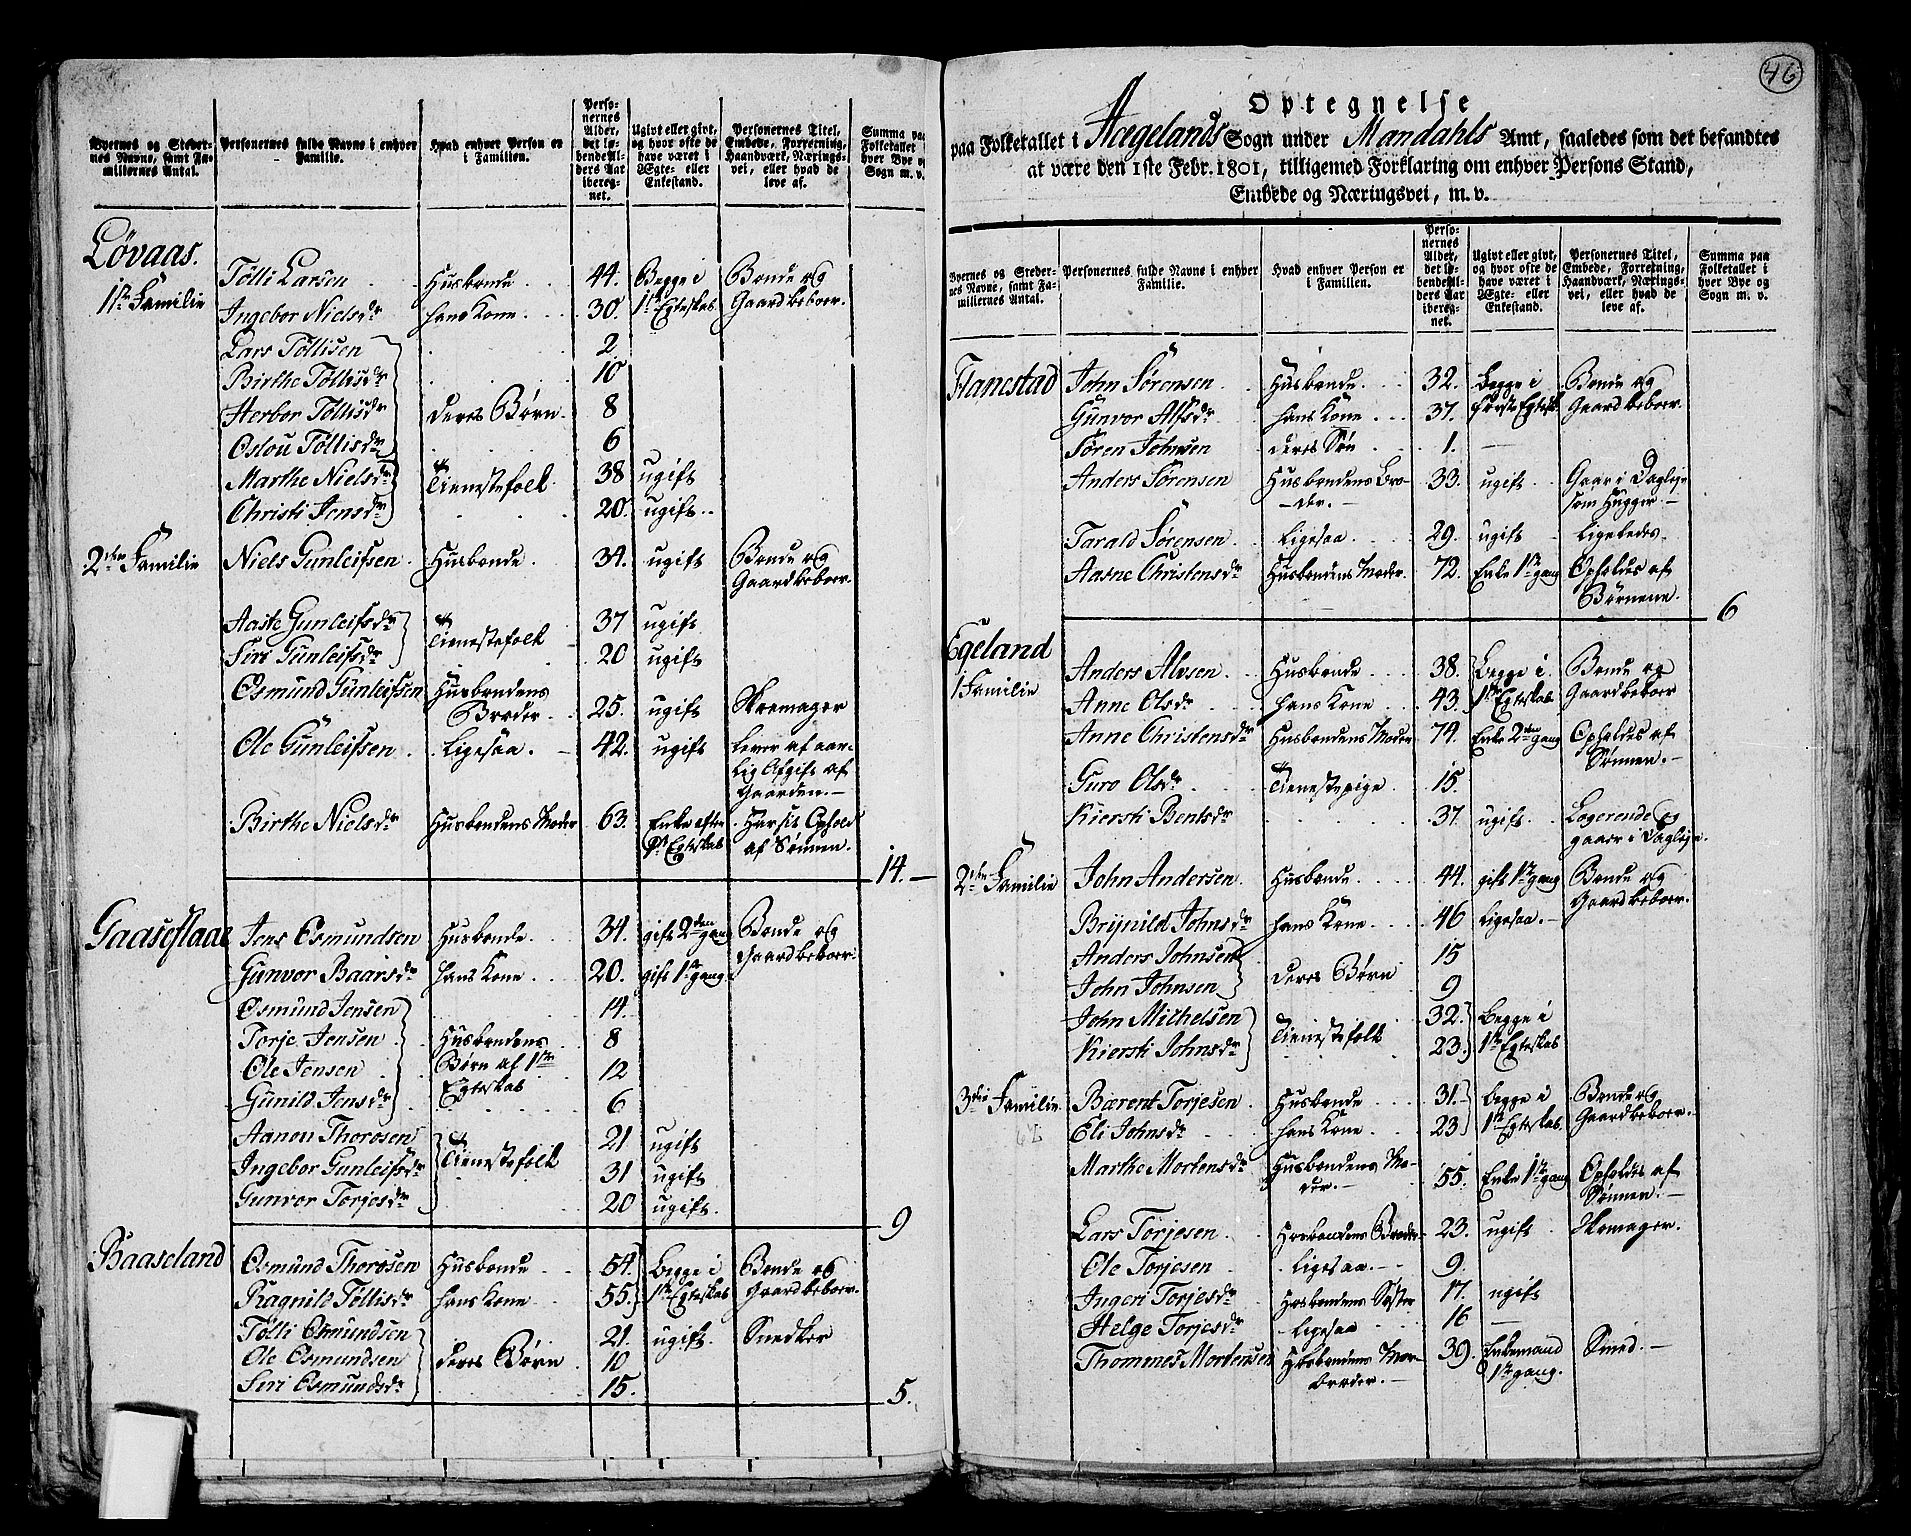 Byernes og Steder-
nes Navne, samt Fa-
miliernes Antal.
Personernes fulde Navne i enhver
Familie.
Hvad enhver Person er
i Familien.
Perso-
nernes
Alder,
det lø-
bende Al-
ders Aar
ibereg-
net.
Ugivt eller givt,
og hvor ofte de
have været i
Ægte- eller
Enkestand.
Personernes Titel,
Embede, Forretning,
Haandværk, Nærings-
vei, eller hvad de
leve af.
Summa paa
Folketallet i
hver Bye og
Sogn m. v.
Løvaas.
1ste Familie
Tølli Larsen Husbonde 44. Begge i Bonde og
Ingebor Nielsdr hans Kone 30. 1ste Egteskab Gaardbeboer.
Lars Tøllisen 2
Birthe Tøllisdr 10
Herbor Tøllisdr deres Børn 8
Oslou Tøllisdr 6
Marthe Nielsdr Tienestefolk 38 ugift
Christi Jensdr 20. ugift
2den Familie Niels Gunleifsen Husbonde 34. ugift Bonde og
Gaardbeboer
Aaste Gunleifsdr Tienestefolk 37 ugift
Siri Gunleifsdr 20 ugift
Osmund Gunleifsen Husbondens
Broder 25. ugift Skomager
Ole Gunleifsen Ligesaa. 42. ugift Lever af aar-
lig Afgift af
Gaarden.
Birthe Nielsdr Husbondens Moder 63. Enke efter Har sit Ophold
1ste Egteskab af Sønnen.
14.
Gaaseflaae Jens Osmundsen Husbonde 34. gift 2den gang Bonde og
Gunvor Baarsdr hans Kone 20. gift 1ste gang Gaardbeboer
Osmund Jensen 14.
Torje Jensen Husbondens 8
Ole Jensen Børn af 1ste 12
Gunild Jensdr Egteskab 6
Aanon Thorosen 21 ugift
Ingebor Gunleifsdr Tienestefolk 31 ugift
Gunvor Torjesdr 20 ugift.
9
Baaseland Osmund Thorosen Husbonde 54. Begge i Bonde og
Ragnild Tøllisdr hans Kone 55. 1ste Egteskab Gaardbeboer.
Tølli Osmundsen 21. ugift. Snedker
Ole Osmundsen deres Børn 10
Siri Osmundsdr 15.
5.
46
Optegnelse
paa Folketallet i Aegelands Sogn under Mandahls Amt, saaledes som det befandtes
at være den 1ste Febr. 1801, tilligemed Forklaring om enhver Persons Stand,
Embede og Næringsvei, m. v.
Byernes og Steder-
nes Navne, samt Fa-
miliernes Antal.
Personernes fulde Navne i enhver
Familie.
Hvad enhver Person er
i Familien.
Perso-
nernes
Alder,
det lø-
bende Al-
ders Aar
ibereg-
net.
Ugivt eller givt,
og hvor ofte de
have været i
Ægte- eller
Enkestand.
Personernes Titel,
Embede, Forretning,
Haandværk, Nærings-
vei, eller hvad de
leve af.
Summa paa
Folketallet i
hver Bye og
Sogn m. v.
Flanestad John Sørensen Husbonde 32. Begge i Bonde og
Gunvor Alfsdr hans Kone 37. første Egtesk. Gaardbeboer
Søren Johnsen deres Søn 1. —
Anders Sørensen Husbondens Bro- 33. ugift Gaar i Dagleje
der. som Hugger
Tarald Sørensen Ligesaa 29. ugift Ligeledes.
Aasne Christensdr Husbondens Moder 72. Enke 1ste gang Opholdes af
Børnene.
6
Egeland
1 Familie
Anders Alvsen Husbonde 38. Begge i Bonde og
Anne Olsdr hans Kone 43. 1ste Egteskab Gaardbeboer
Anne Christensdr Husbondens Moder 74. Enke 2den gang Opholdes af
Sønnen.
Guro Olsdr Tienestepige 15.
Kiersti Bentsdr 37. ugift Logerende og
gaaer i Dagleje.
2den Familie John Andersen Husbonde 44. gift 1ste gang Bonde og
Gaardbeboer.
Brynild Johnsdr hans Kone 46 Ligesaa.
Anders Johnsen 15
John Johnsen deres Børn 9
John Michelsen Tienestefolk 32. Begge i
Kiersti Johnsdr 23. 1ste Egteskab
3die Familie Bærent Torjesen Husbonde 31. Begge i Bonde og
Eli Johnsdr hans Kone 23 1ste Egteskab. Gaardbeboer.
Marthe Mortensdr Husbondens Mo- 55. Enke 1ste gang Opholdes af
der. Sønnen.
Lars Torjesen Husbondens Broder 23. ugift Skomager.
Ole Torjesen Ligesaa 9.
Ingeri Torjesdr Husbondens Søster 17. ugift
Helge Torjesdr Ligesaa 16 —
Thommes Mortensen Husbondens Mor- 39. Enkemand Smed.
broder. 1ste gang.